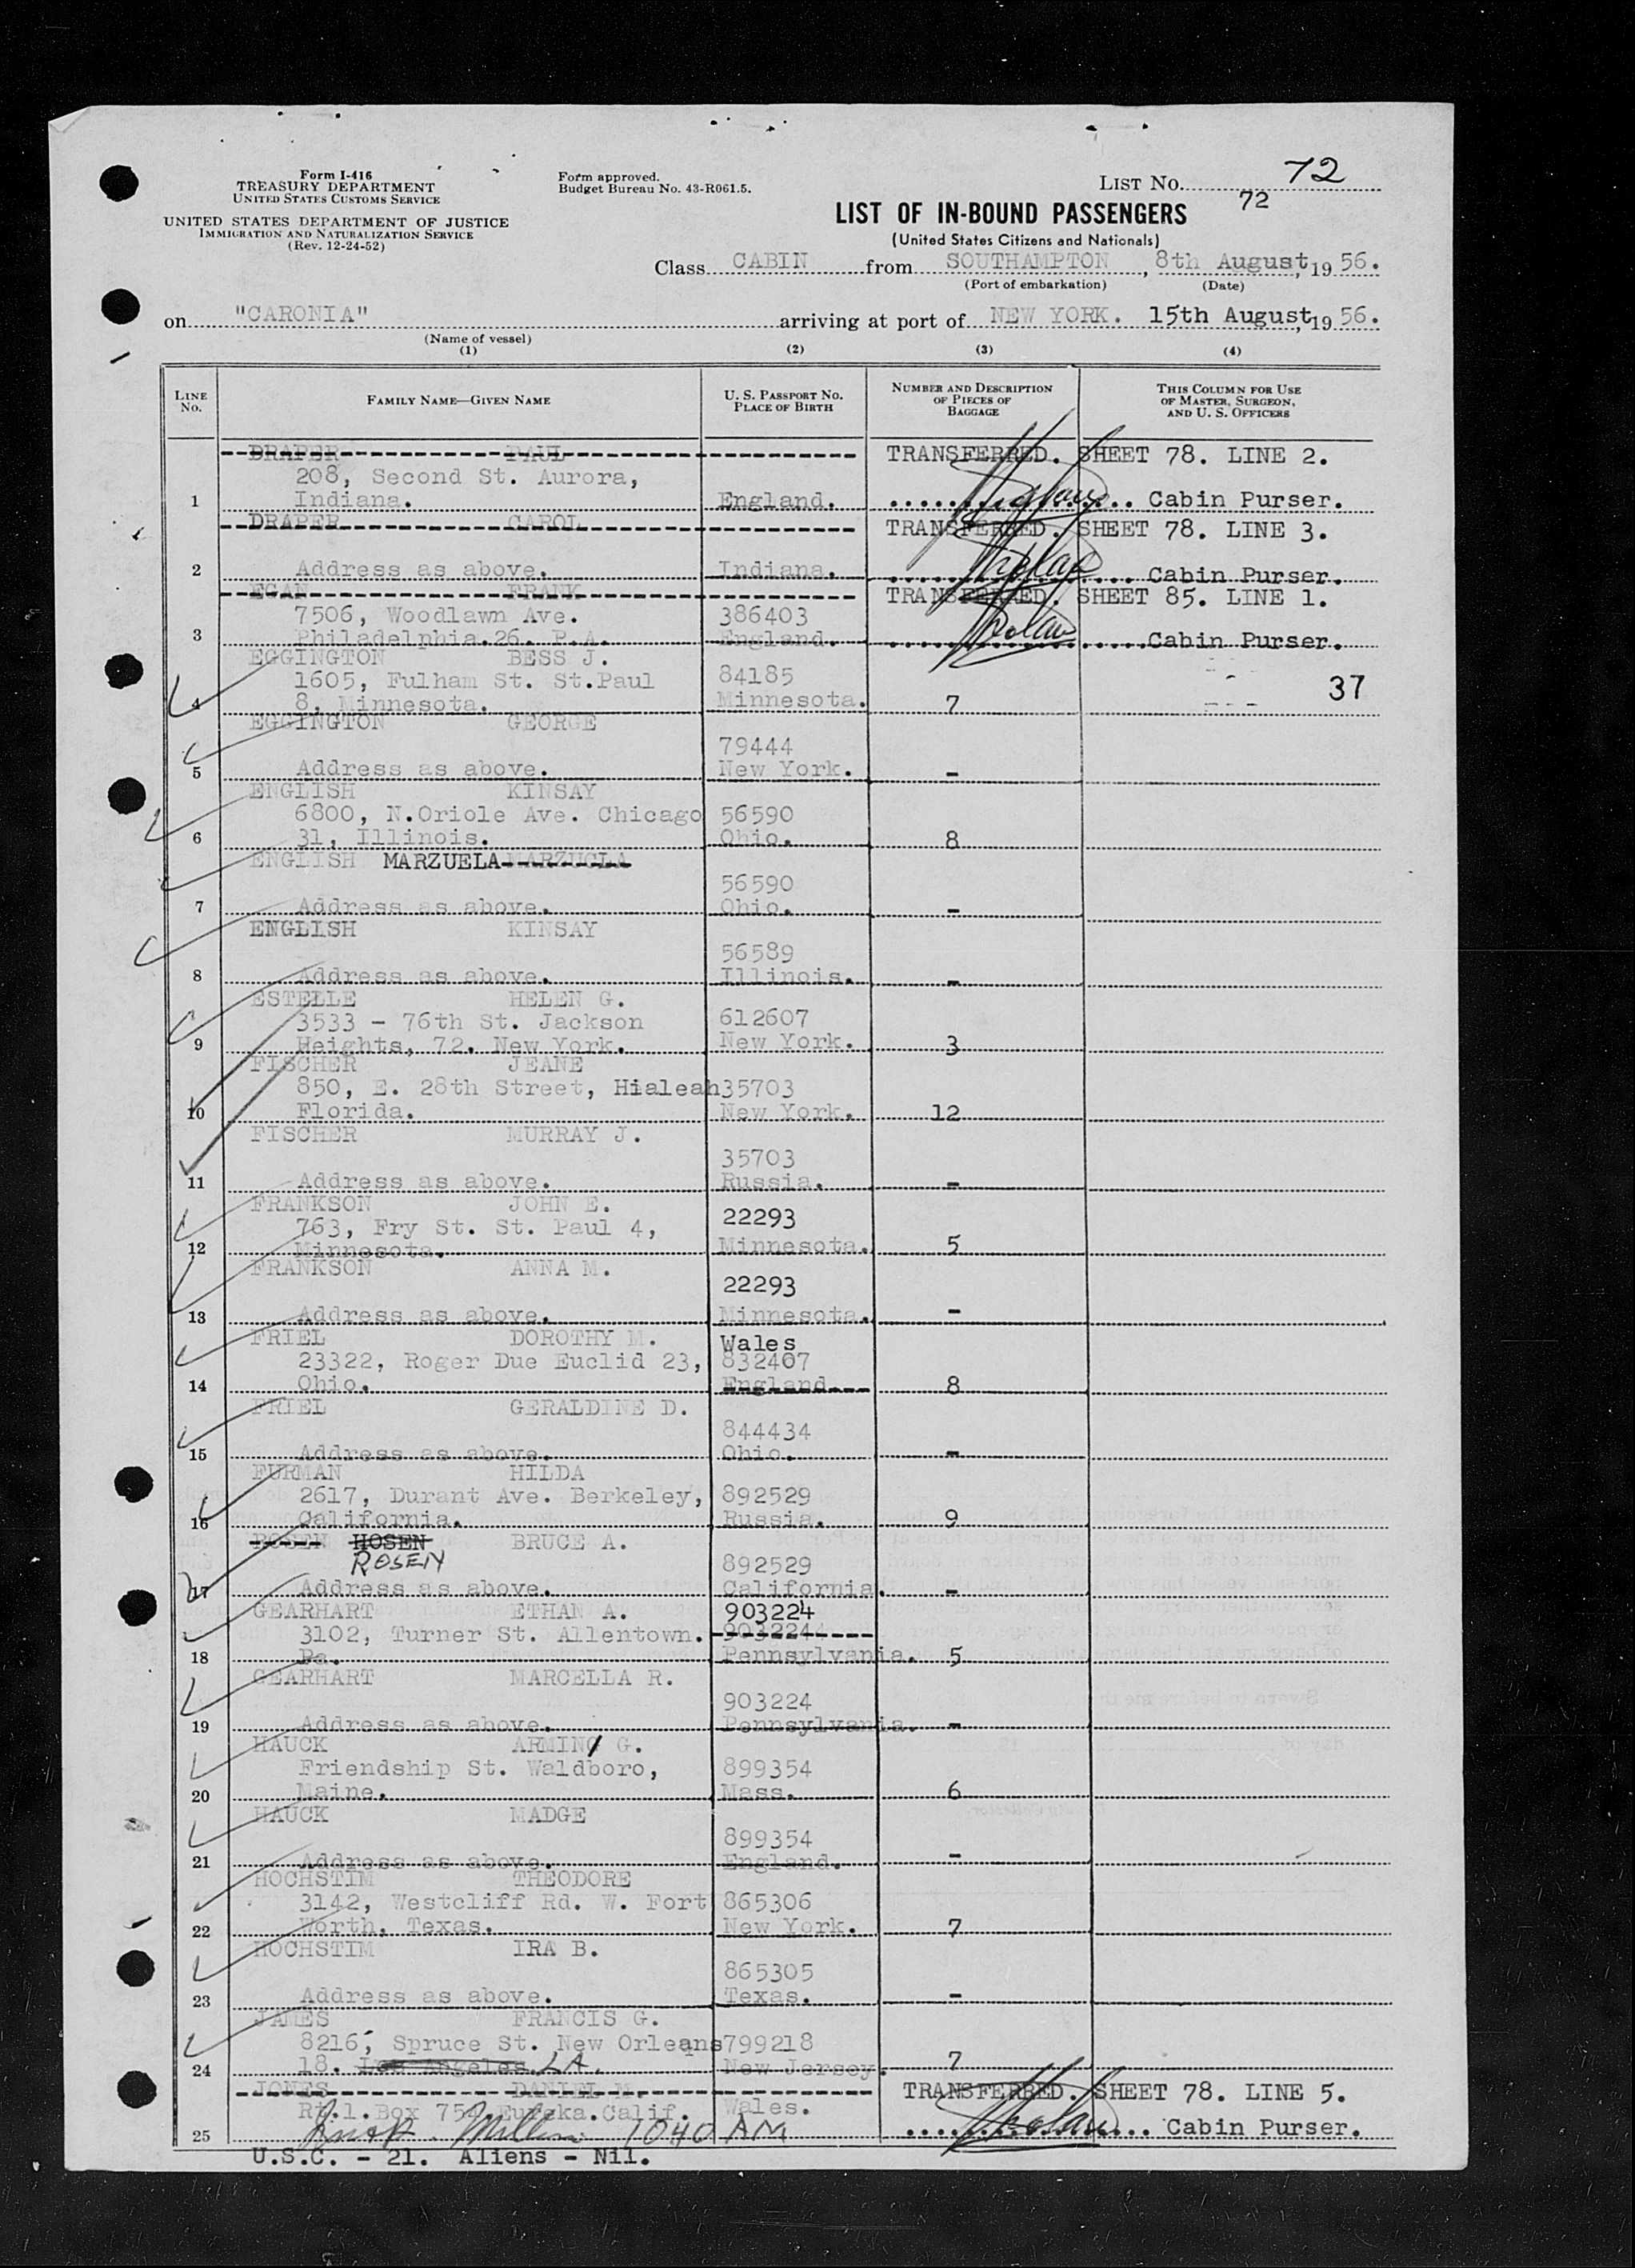 Form I-416
TREASURY DEPARTMENT
UNITED STATES CUSTOMS SERVICE
UNITED STATES DEPARTMENT OF JUSTICE
IMMIGRATION AND NATURALIZATION SERVICE
(Rev. 12-24-52)
Form approved.
Budget Bureau No. 43-R061.5.
LIST NO. 72
72
LIST OF IN-BOUND PASSENGERS
(United States Citizens and Nationals)
Class CABIN from SOUTHAMPTON, 8th August, 1956.
(Port of embarkation) (Date)
on "CARONIA" arriving at port of NEW YORK. 15th August, 1956.
(Name of vessel)
(1) (2) (3) (4)
LINE NO. FAMILY NAME—GIVEN NAME U. S. PASSPORT NO. PLACE OF BIRTH NUMBER AND DESCRIPTION OF PIECES OF BAGGAGE THIS COLUMN FOR USE OF MASTER, SURGEON, AND U. S. OFFICERS
DRAPER PAUL TRANSFERRED. SHEET 78. LINE 2.
208, Second St. Aurora,
1 Indiana. England. Cabin Purser.
DRAPER CAROL TRANSFERRED. SHEET 78. LINE 3.
2 Address as above. Indiana. Cabin Purser.
EGAN FRANK TRANSFERRED. SHEET 85. LINE 1.
7506, Woodlawn Ave. 386403
3 Philadelphia.26. P.A. England. Cabin Purser.
EGGINGTON BESS J.
1605, Fulham St. St.Paul 84185 37
4 8, Minnesota. Minnesota. 7
EGGINGTON GEORGE
79444
5 Address as above. New York. -
ENGLISH KINSAY
6800, N.Oriole Ave. Chicago 56590
6 31, Illinois. Ohio. 8
ENGLISH MARZUELA MARZUCLA
56590
7 Address as above. Ohio. -
ENGLISH KINSAY
56589
8 Address as above. Illinois. -
ESTELLE HELEN G.
3533 - 76th St. Jackson 612607
9 Heights, 72. New York. New York. 3
FISCHER JEANE
850, E. 28th Street, Hialeah 35703
10 Florida. New York. 12
FISCHER MURRAY J.
35703
11 Address as above. Russia. -
FRANKSON JOHN E.
763, Fry St. St. Paul 4, 22293
12 Minnesota. Minnesota. 5
FRANKSON ANNA M.
22293
13 Address as above. Minnesota. -
FRIEL DOROTHY M. Wales
23322, Roger Due Euclid 23, 832407
14 Ohio. England. 8
FRIEL GERALDINE D.
844434
15 Address as above. Ohio. -
FURMAN HILDA
2617, Durant Ave. Berkeley, 892529
16 California. Russia. 9
ROSEN HOSEN BRUCE A.
ROSEN 892529
17 Address as above. California. -
GEARHART ETHAN A. 903224
3102, Turner St. Allentown. 903224
18 Pa. Pennsylvania. 5
GEARHART MARCELLA R.
903224
19 Address as above. Pennsylvania. -
HAUCK ARMIN G.
Friendship St. Waldboro, 899354
20 Maine. Mass. 6
HAUCK MADGE
899354
21 Address as above. England. -
HOCHSTIM THEODORE
3142, Westcliff Rd. W. Fort 865306
22 Worth, Texas. New York. 7
HOCHSTIM IRA B.
865305
23 Address as above. Texas. -
JANES FRANCIS G.
8216, Spruce St. New Orleans 799218
24 18. Los Angeles. LA. New Jersey. 7
JONES DANIEL M. TRANSFERRED. SHEET 78. LINE 5.
Rt.1.Box 754.Eureka.Calif. Wales.
25 1040 AM Cabin Purser.
U.S.C. - 21. Aliens - Nil.